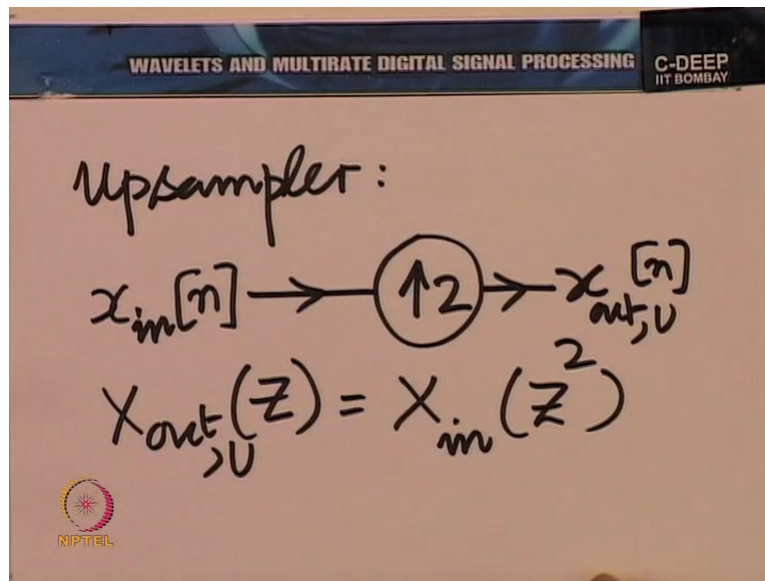 WAVELETS AND MULTIRATE DIGITAL SIGNAL PROCESSING
C-DEEP
IIT BOMBAY
Upsampler:
x_in[n] → ↑2 → x_out,U[n]
X_out,U(Z) = X_in(Z²)
NPTEL